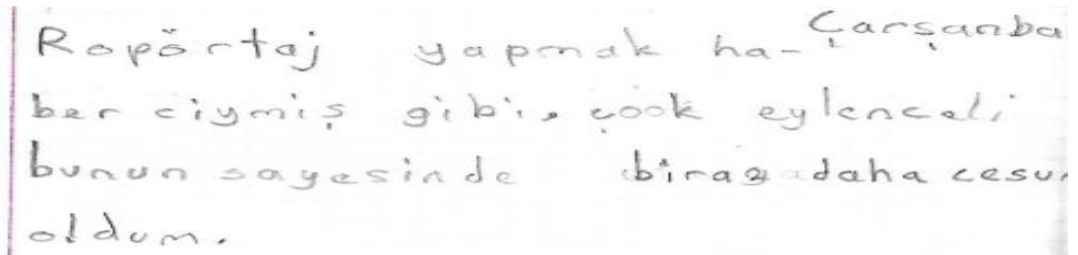 Çarşanba
Ropörtaj yapmak ha-
ber ciymiş gibi, çook eylenceli
bunun sayesinde biraz daha cesur
oldum.